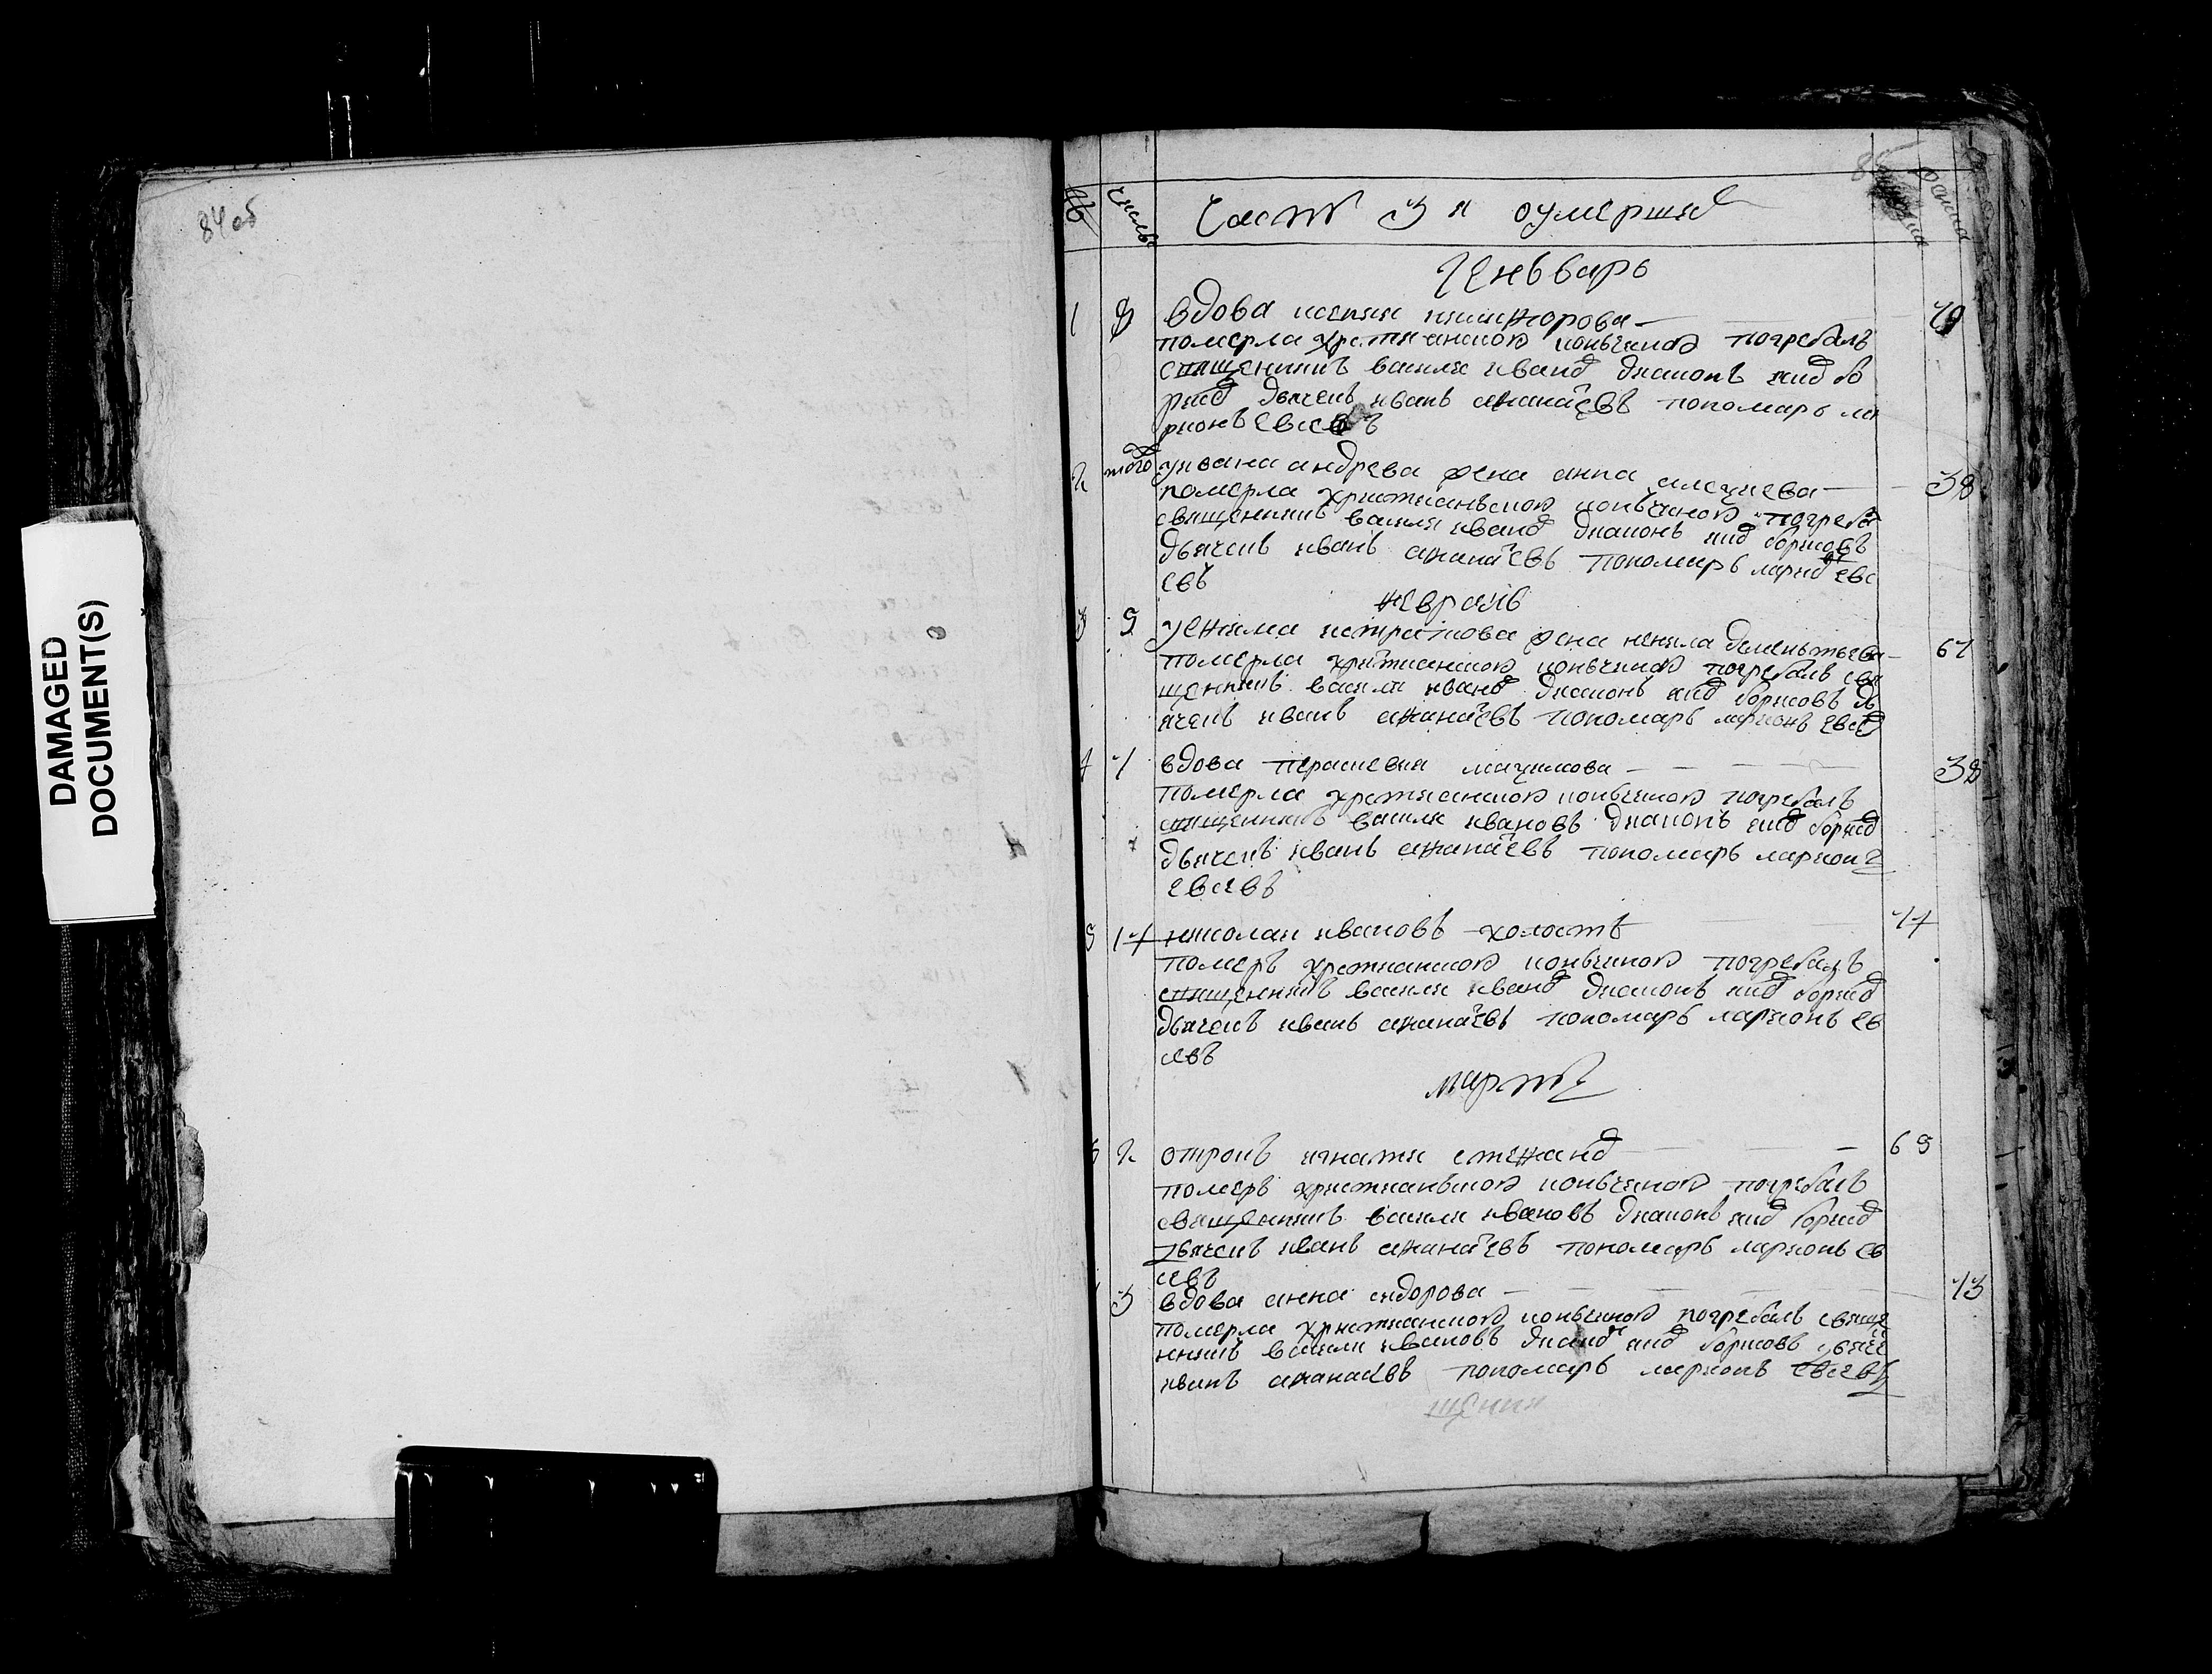 84 об
DAMAGED
DOCUMENT(S)
№ числы часть 3 я оумерших
генъварь
1 8 вдова ксения никифорова 70
померла християнскою коньчиною погребалъ
священникъ василя иванов диаконъ яков бо
рисов дьячекъ иванъ афанасевъ пономарь ла
рионъ евсевъ
2 того у ивана андрева жена анна алексиева 38
померла християньскою коньчиною погреба
священникъ василя иванов диаконъ яков борисовъ
дьячекъ иванъ афанасевъ пономарь ларион евс
евъ
февраль
3 5 у ефима истратова жена ненила дементьева 67
померла християнскою коньчиною погребалъ свя
щенникъ василя иванов диаконъ яков борисовъ дь
ячекъ иванъ афанасевъ пономарь ларионъ евсев
4 7 вдова парасковия макsимова 38
померла християнскою коньчиною погребалъ
священникъ василя ивановъ диаконъ яков борисов
дьячекъ иванъ афанасевъ пономарь ларионъ
евсевъ
5 14 николаи ивановъ холостъ 74
померъ християнскою коньчиною погребалъ
священникъ василя иванов диаконъ яков борисов
дьячекъ иванъ афанасевъ пономарь ларионъ ев
севъ
мартъ
6 2 отрокъ игнатя стефанов 65
померъ християньскою коньчиною погребалъ
священникъ василя ивановъ диаконъ яков борисов
дьячекъ иванъ афанасевъ пономарь ларионъ ев
севъ
3 вдова анна сидорова 73
померла християнскою коньчиною погребалъ свяще
нникъ василя ивановъ диакон яков борисовъ дьячек
иванъ афанасевъ пономарь ларионъ евсевъ
щения